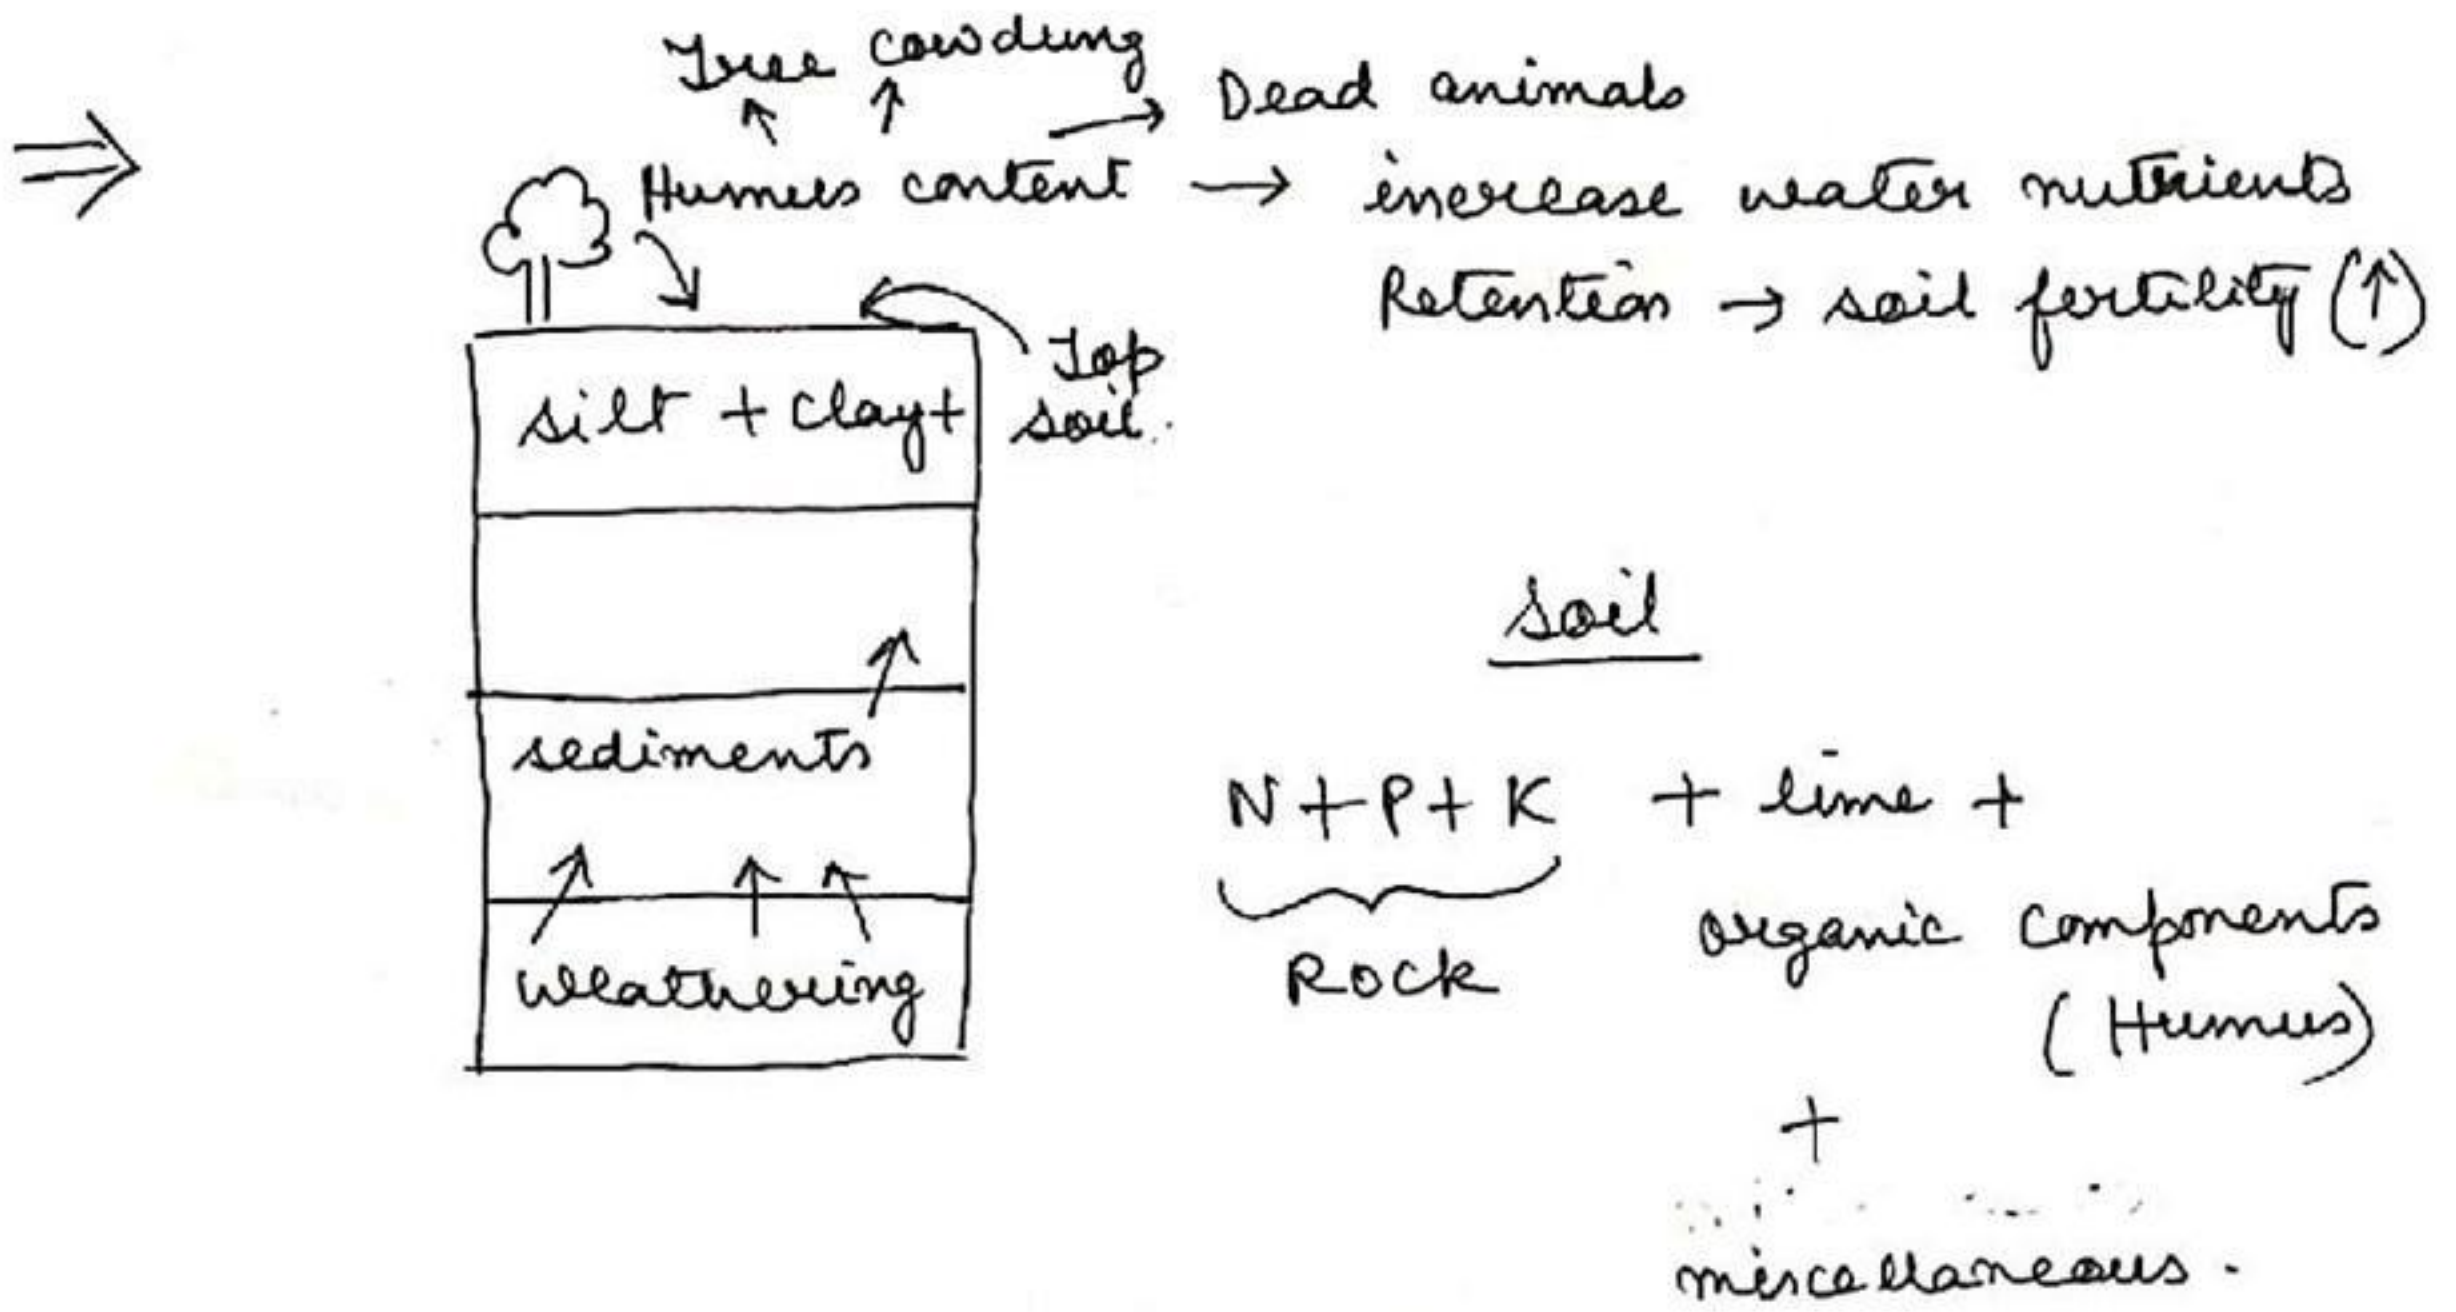 Tree cowdung
⇒ → Dead animals
Humus content → increase water nutrients
Retention → soil fertility (↑)
Top
soil.
silt + clay +
sediments
weathering
soil
N + P + K + lime +
Rock
organic components
(Humus)
+
miscellaneous.